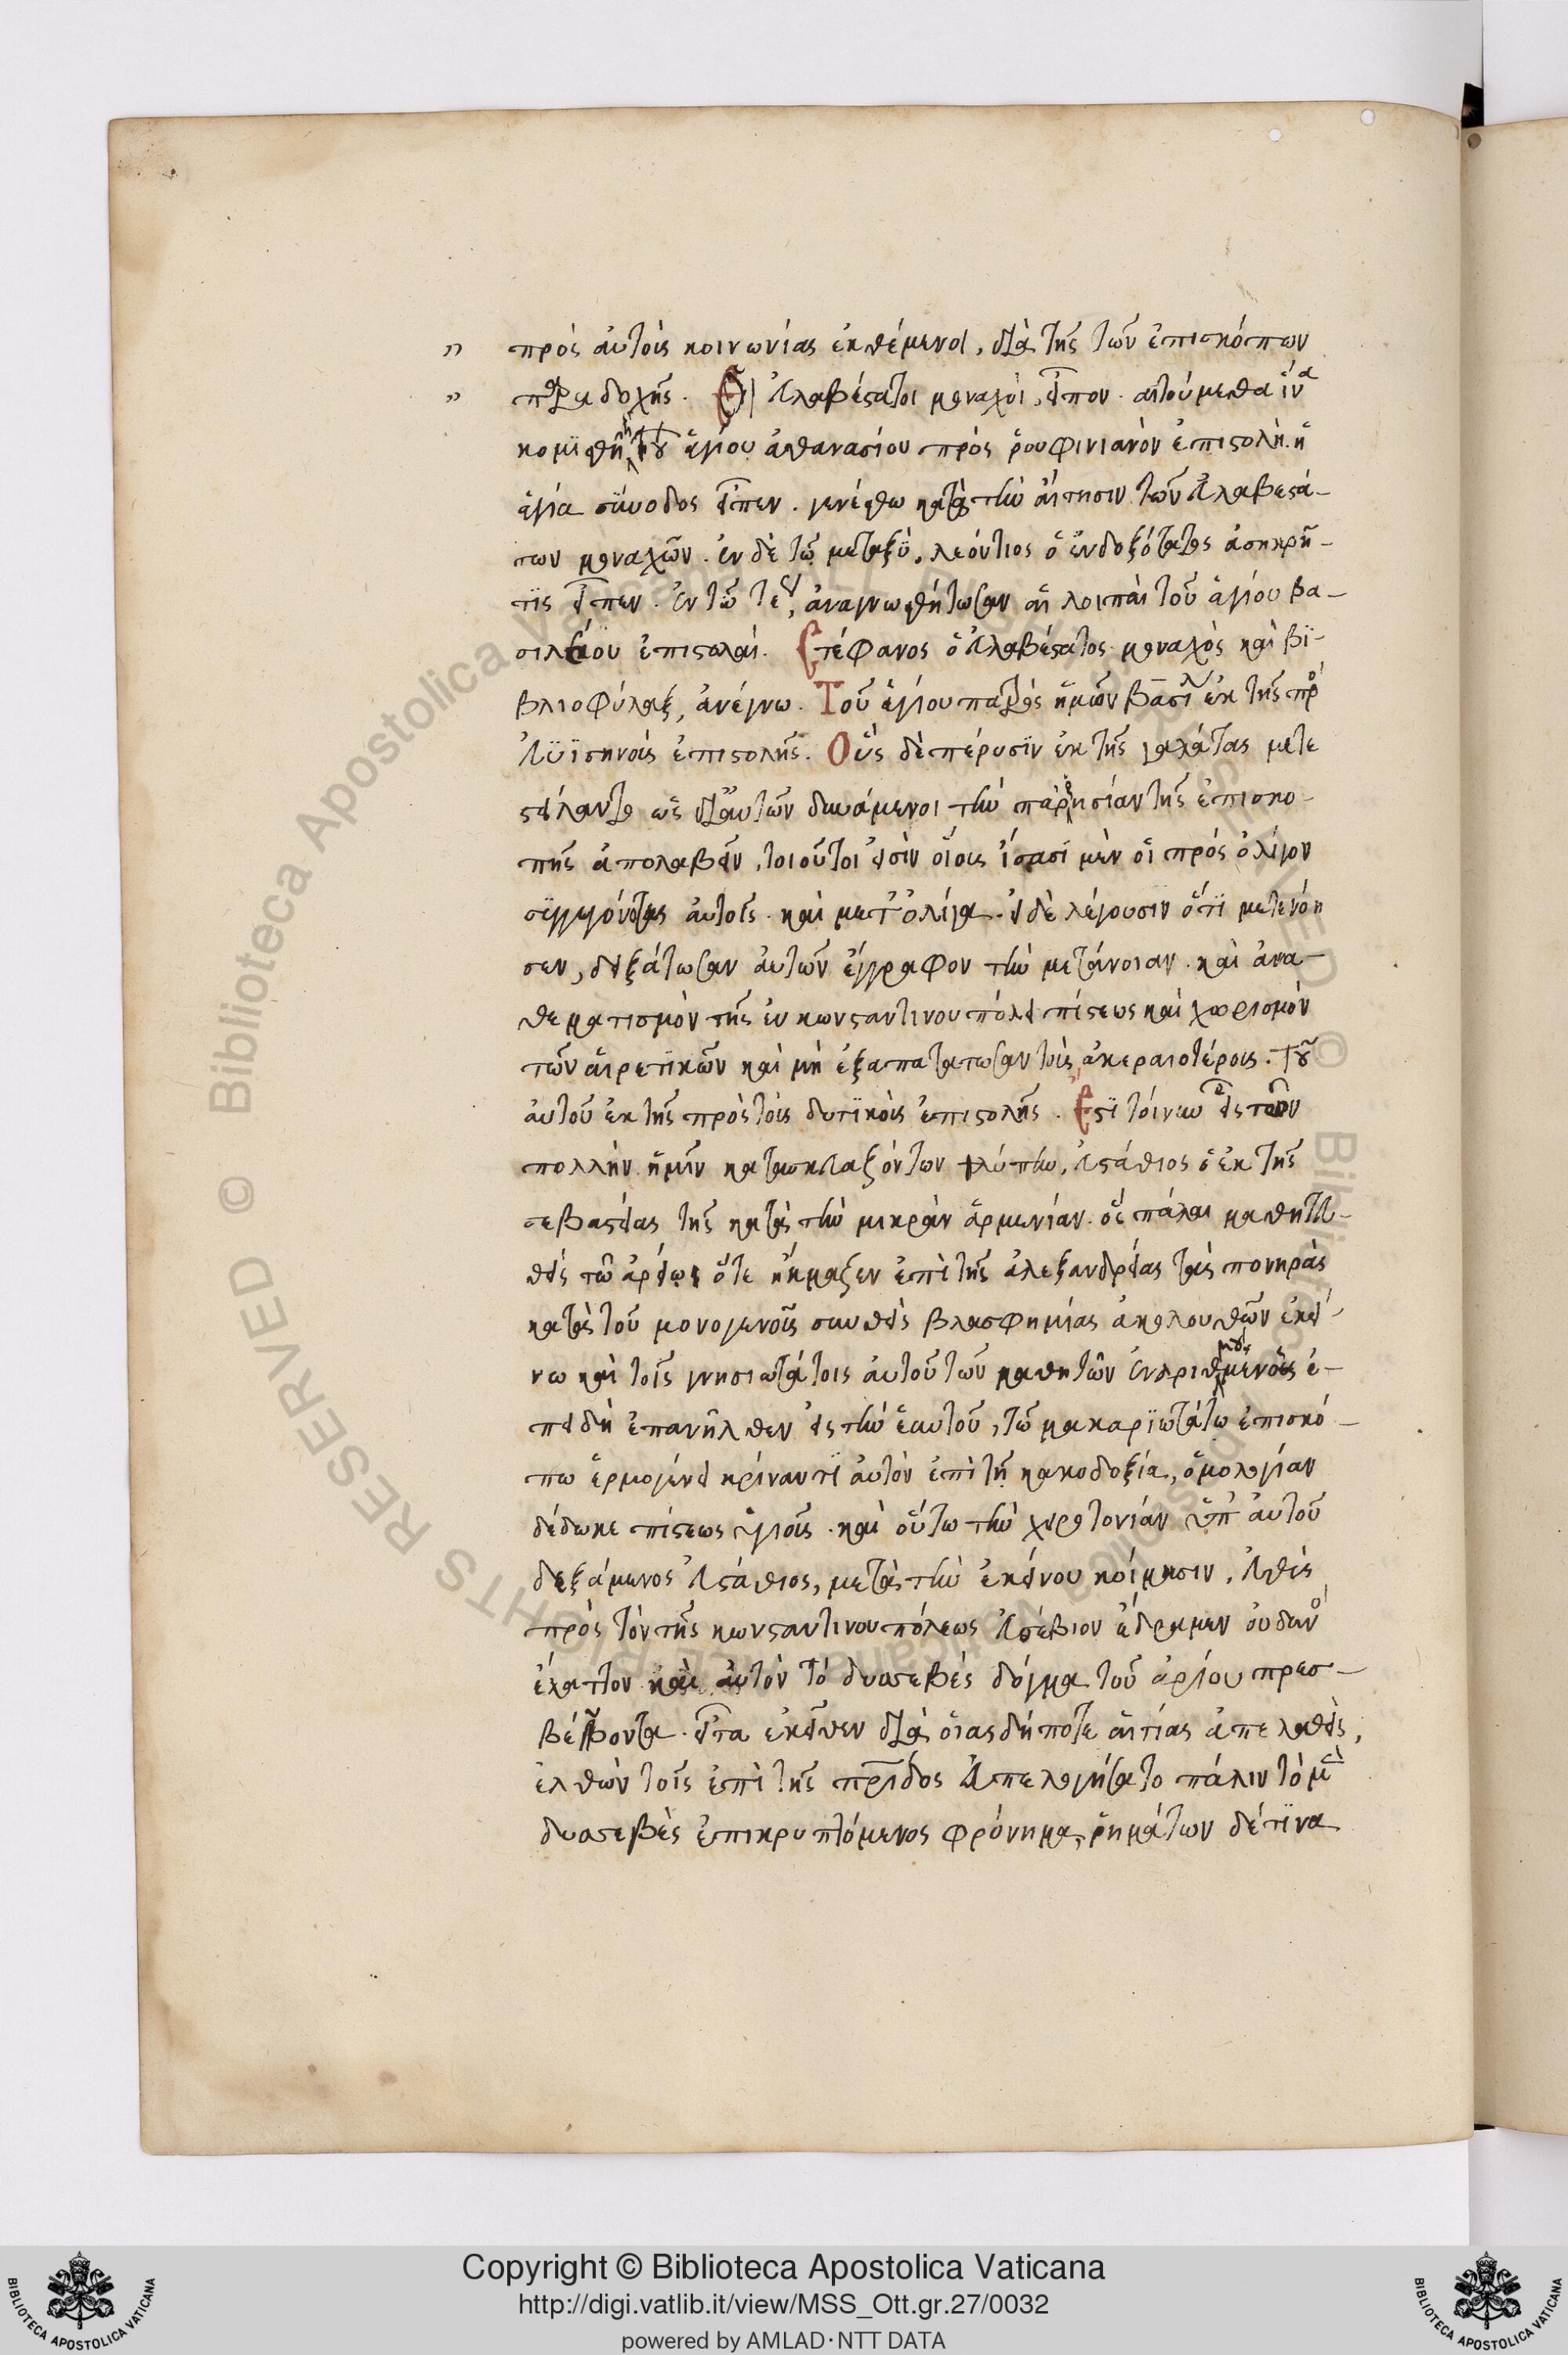 πρὸς αὐτοὺς κοινωνίας ἐκθέμενοι, διὰ τῆς τῶν ἐπισκόπων
παραδοχῆς. Οἱ εὐλαβέστατοι μοναχοὶ, εἶπον. αἰτούμεθα ἵνα
κομισθῆ ἡ τοῦ ἁγίου ἀθανασίου πρὸς ῥουφινιανὸν ἐπιστολή. ἡ
ἁγία σύνοδος εἶπεν. γενέσθω κατὰ τὴν αἴτησιν τῶν εὐλαβεστά-
των μοναχῶν. ἐν δὲ τῷ μεταξὺ, λεόντιος ὁ ἐνδοξότατος ἀσηκρῆ-
τις εἶπεν. ἐν τῷ τέως, ἀναγνωσθήτωσαν αἱ λοιπαὶ τοῦ ἁγίου βα-
σιλείου ἐπιστολαί. Στέφανος ὁ εὐλαβέστατος μοναχὸς καὶ βι-
βλιοφύλαξ, ἀνέγνω. Τοῦ ἁγίου πατρὸς ἡμῶν βασιλ ἐκ τῆς πρὸ
εὐϊσηνοὺς ἐπιστολῆς. Οὓς δὲ πέρυσιν ἐκ τῆς γαλάτας μετε
στείλαντο ὡς δι' αὐτῶν δυνάμενοι τὴν παρρησίαν τῆς ἐπισκο-
πῆς ἀπολαβεῖν, τοιοῦτοι εἰσὶν οἵους ἴσασι μὲν οἱ πρὸς ὀλίγον
συγγεγονότες αὐτοῖς. καὶ μετ' ὀλίγα. εἰ δὲ λέγουσιν ὅτι μετενόη
σεν, δειξάτωσαν αὐτῶν ἔγγραφον τὴν μετάνοιαν. καὶ ἀνα-
θεματισμὸν τῆς ἐν κωνσταντινουπόλει πίστεως καὶ χωρισμὸν
τῶν αἱρετικῶν καὶ μὴ ἐξαπατάτωσαν τοὺς ἀκεραιοτέροις. τοῦ
αὐτοῦ ἐκ τῆς πρὸς τοὺς δυτικοὺς ἐπιστολῆς. Ἔστι τοίνυν εἷς τῶν
πολλὴν ἡμῖν κατασκευαζόντων λύπην, εὐστάθιος ὁ ἐκ τῆς
σεβαστείας τῆς κατὰ τὴν μικρὰν ἀρμενίαν. ὃς πάλαι μαθητευ-
θεὶς τῷ ἀρείῳ ὅτε ἤκμαζεν ἐπὶ τῆς ἀλεξανδρείας τὰς πονηρὰς
κατὰ τοῦ μονογενοῦς συνθεὶς βλασφημίας ἀκολουθῶν ἐκεί-
νω καὶ τοῖς γνησιωτάτοις αὐτοῦ τῶν μαθητῶν ἐναριθμούμενος ἐ-
πειδὴ ἐπανῆλθεν εἰς τὴν ἑαυτοῦ, τῷ μακαριωτάτω ἐπισκό-
πω ἑρμογένει κρίναντι αὐτὸν ἐπὶ τῇ κακοδοξία, ὁμολογίαν
δέδωκε πίστεως ὑγιοῦς. καὶ οὕτω τὴν χειροτονίαν ὑπ' αὐτοῦ
δεξάμενος εὐστάθιος, μετὰ τὴν ἐκείνου κοίμησιν, εὐθὺς
πρὸς τὸν τῆς κωνσταντινουπόλεως εὐσέβιον ἔδραμεν οὐδενὸ
ἔλαττον καὶ αὐτὸν τὸ δυσσεβὲς δόγμα τοῦ ἀρείου πρεσ-
βεύοντα. εἶτα ἐκεῖθεν διὰ οἵας δήποτε αἰτίας ἀπελαθεὶς,
ἐλθὼν τοῖς ἐπὶ τῆς πρίδος ἀπελογήσατο πάλιν τὸ μὲ
δυσσεβὲς ἐπικρυπτόμενος φρόνημα, ῥημάτων δέ τινα
Copyright © Biblioteca Apostolica Vaticana
http://digi.vatlib.it/view/MSS_Ott.gr.27/0032
powered by AMLAD·NTT DATA